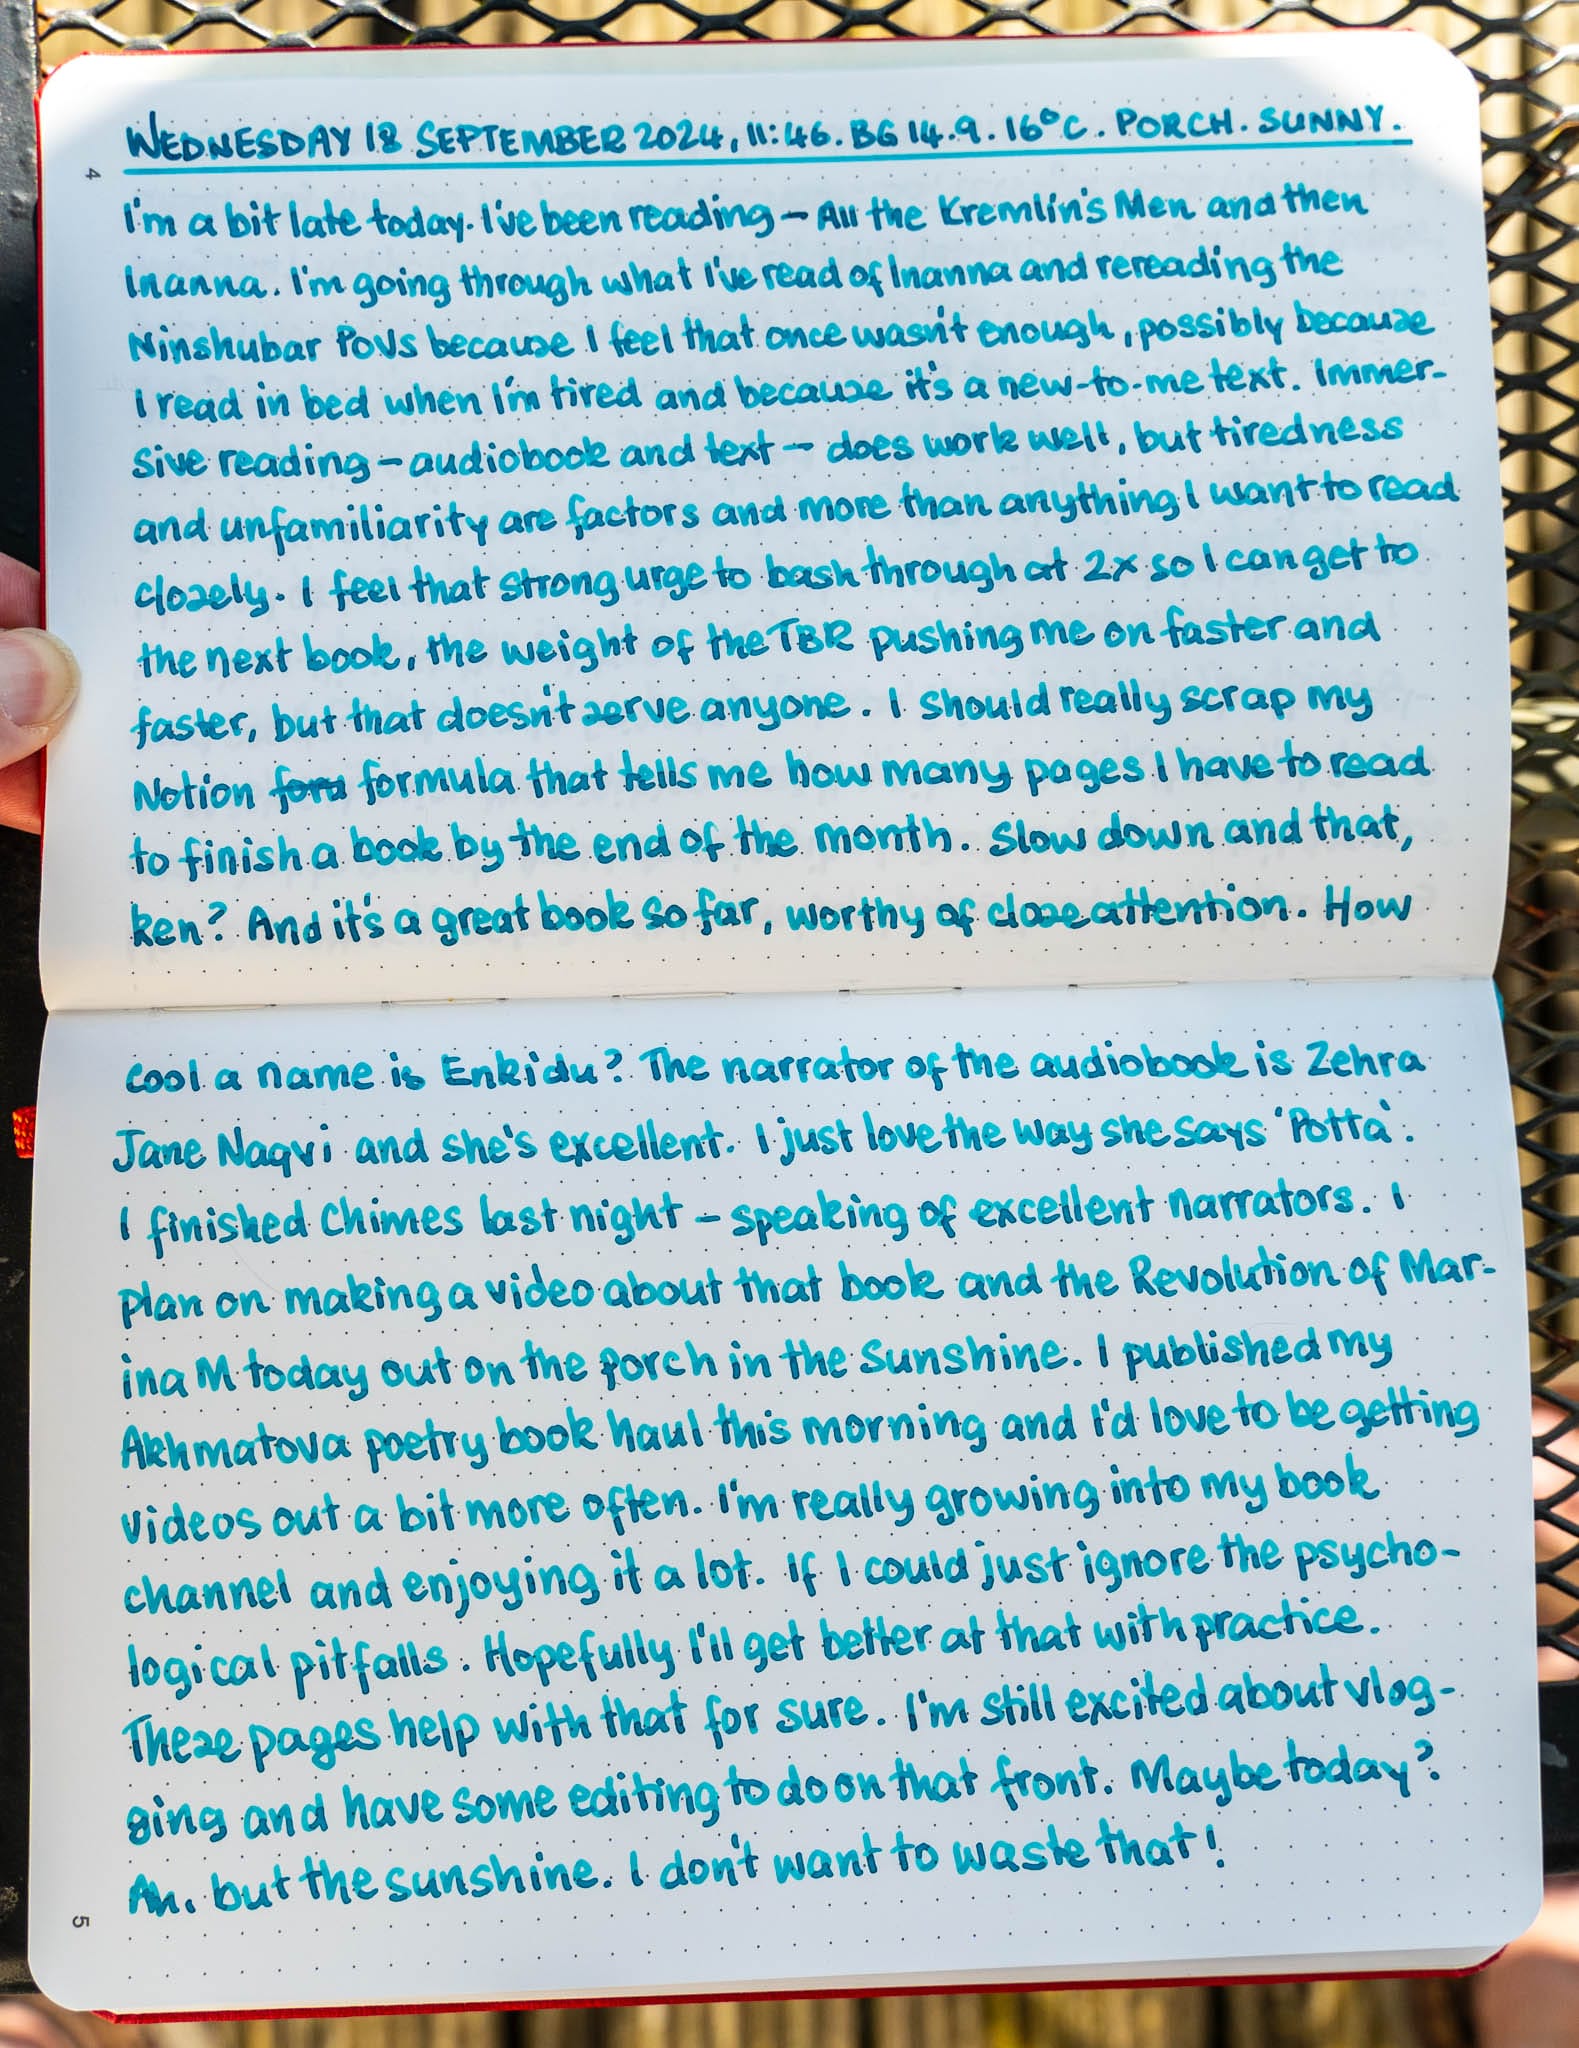 WEDNESDAY 18 SEPTEMBER 2024, 11:46. BG 14.9. 16°C. PORCH. SUNNY.
4
I'm a bit late today. I've been reading – All the Kremlin's Men and then
Inanna. I'm going through what I've read of Inanna and rereading the
Ninshubar POVs because I feel that once wasn't enough, possibly because
I read in bed when I'm tired and because it's a new-to-me text. Immer-
sive reading – audiobook and text – does work well, but tiredness
and unfamiliarity are factors and more than anything I want to read
closely. I feel that strong urge to bash through at 2x so I can get to
the next book, the weight of the TBR pushing me on faster and
faster, but that doesn't serve anyone. I should really scrap my
Notion formula that tells me how many pages I have to read
to finish a book by the end of the month. Slow down and that,
ken? And it's a great book so far, worthy of close attention. How
cool a name is Enkidu? The narrator of the audiobook is Zehra
Jane Naqvi and she's excellent. I just love the way she says 'Potta'.
I finished Chimes last night – speaking of excellent narrators. I
plan on making a video about that book and the Revolution of Mar-
ina M today out on the porch in the sunshine. I published my
Akhmatova poetry book haul this morning and I'd love to be getting
videos out a bit more often. I'm really growing into my book
channel and enjoying it a lot. If I could just ignore the psycho-
logical pitfalls. Hopefully I'll get better at that with practice.
These pages help with that for sure. I'm still excited about vlog-
ging and have some editing to do on that front. Maybe today?
Ah, but the sunshine. I don't want to waste that!
5